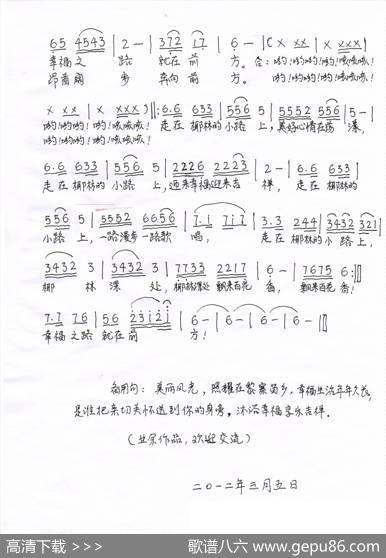 65 4543 | 2 - | 372 17 | 6 - | (X XX | X XXX |
幸福之 路 就在前 方。合:哟!哟哟!哟!咳咳咳!
昂首阔 步 奔向前 方。 哟!哟哟!哟!咳咳咳!
X XX | X XXX) :‖: 6.6 633 | 556 5 | 5552 556 | 5 - |
哟!哟哟!哟!咳咳咳! 走在椰林的小路 上,美好心情在荡 漾,
哟!哟哟!哟!咳咳咳!
6.6 633 | 556 5 | 2226 2223 | 2 - | 6.6 633 |
走在椰林的小路 上,迎来幸福迎来吉 祥, 走在椰林的
556 5 | 5552 6656 | 7.1 717 | 3.3 244 | 3432 321 |
小路 上,一路漫步一路歌 唱, 走在椰林的小路上,
3432 3 | 3432 3 | 7733 2217 | 6 - | 7675 6 :‖
椰 林 深 处,椰林深处飘来百花 香, 飘来百花 香!
7.7 76 | 56 23i2i | 6 - | 6 - | 6 - | 6 - ‖
幸福之路 就在前 方!
备用句: 美丽风光,照耀在黎寨苗乡,幸福生活年年久长,
是谁把亲切关怀送到你的身旁。沐浴幸福享乐吉祥。
(业余作品,欢迎交流)
二〇一二年三月五日
高清下载 >>> 歌谱八六 www.gepu86.com